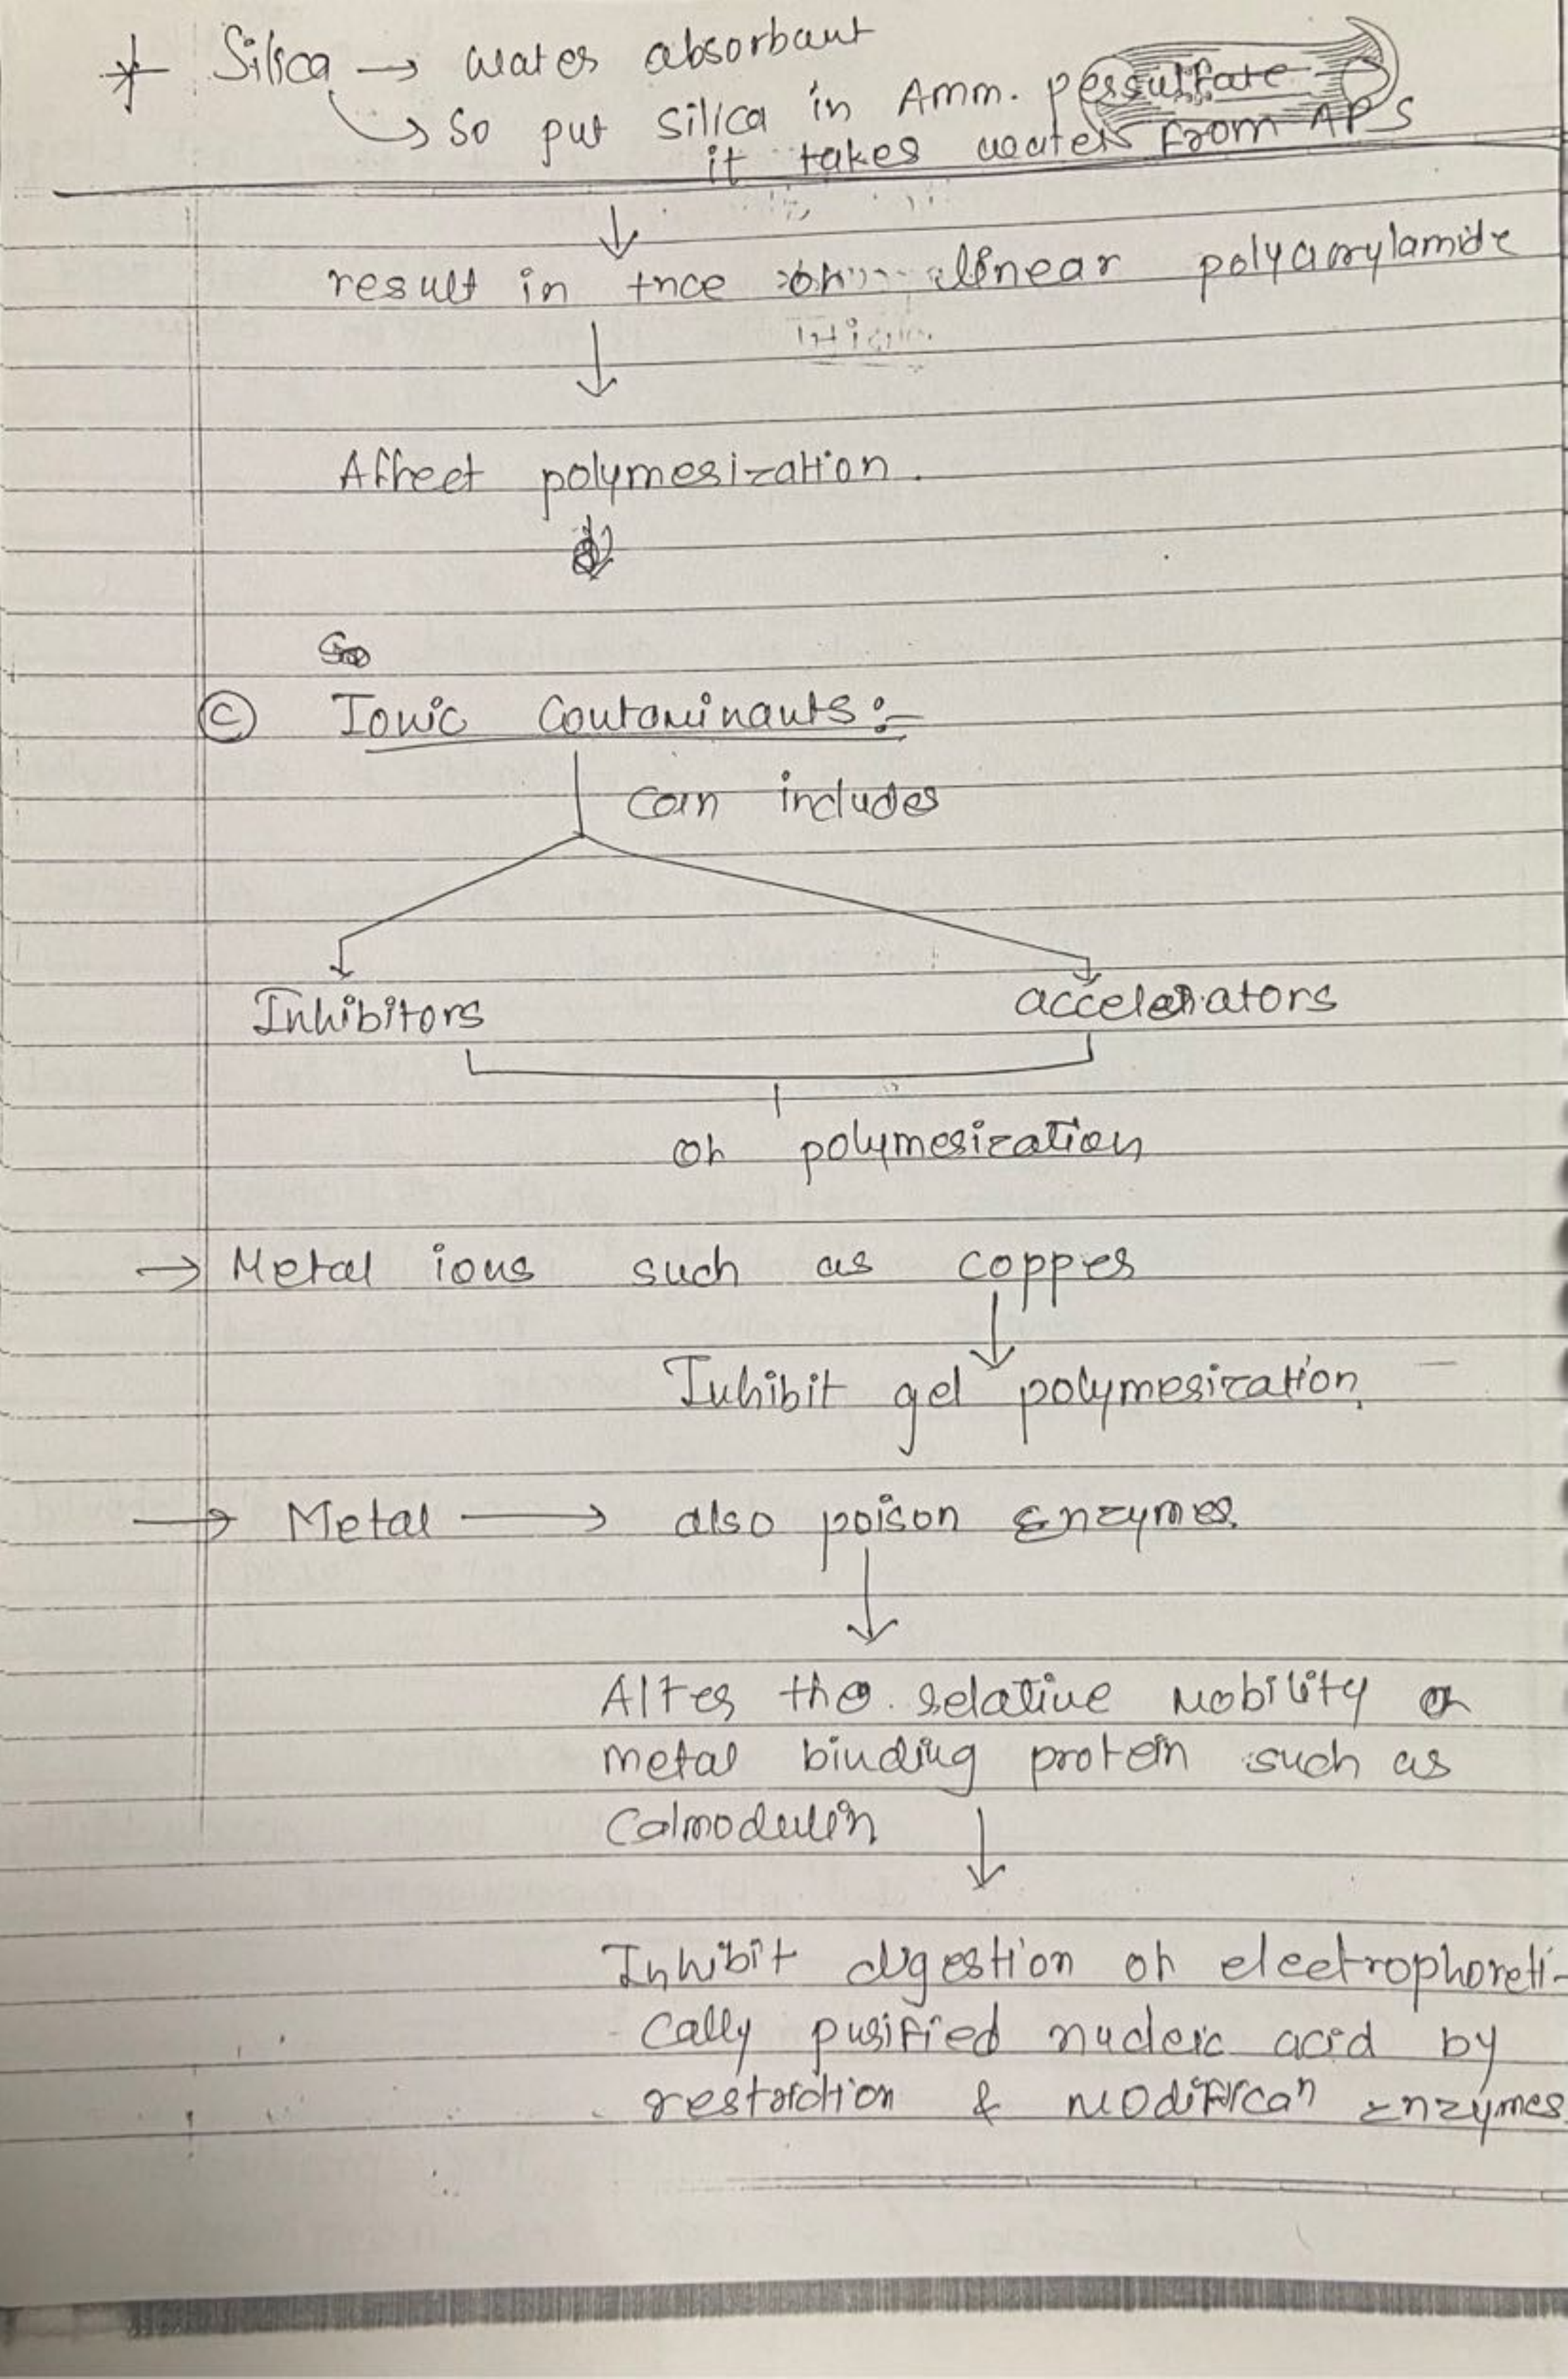 * Silica → water absorbant
↳ so put silica in Amm. persulfate →
it takes water from APS
↓
result in tnce of linear polyacrylamide
↓
Affect polymerization.
So
Ⓒ Ionic Contaminants:-
can includes
Inhibitors accelerators
of polymerization
→ Metal ions such as copper
↓
Inhibit gel polymerization.
→ Metal → also poison Enzymes.
↓
Alter the relative Mobility of
metal binding protein such as
Calmodulin
↓
Inhibit digestion of electrophoreti-
cally purified nucleic acid by
restriction & Modifican Enzymes